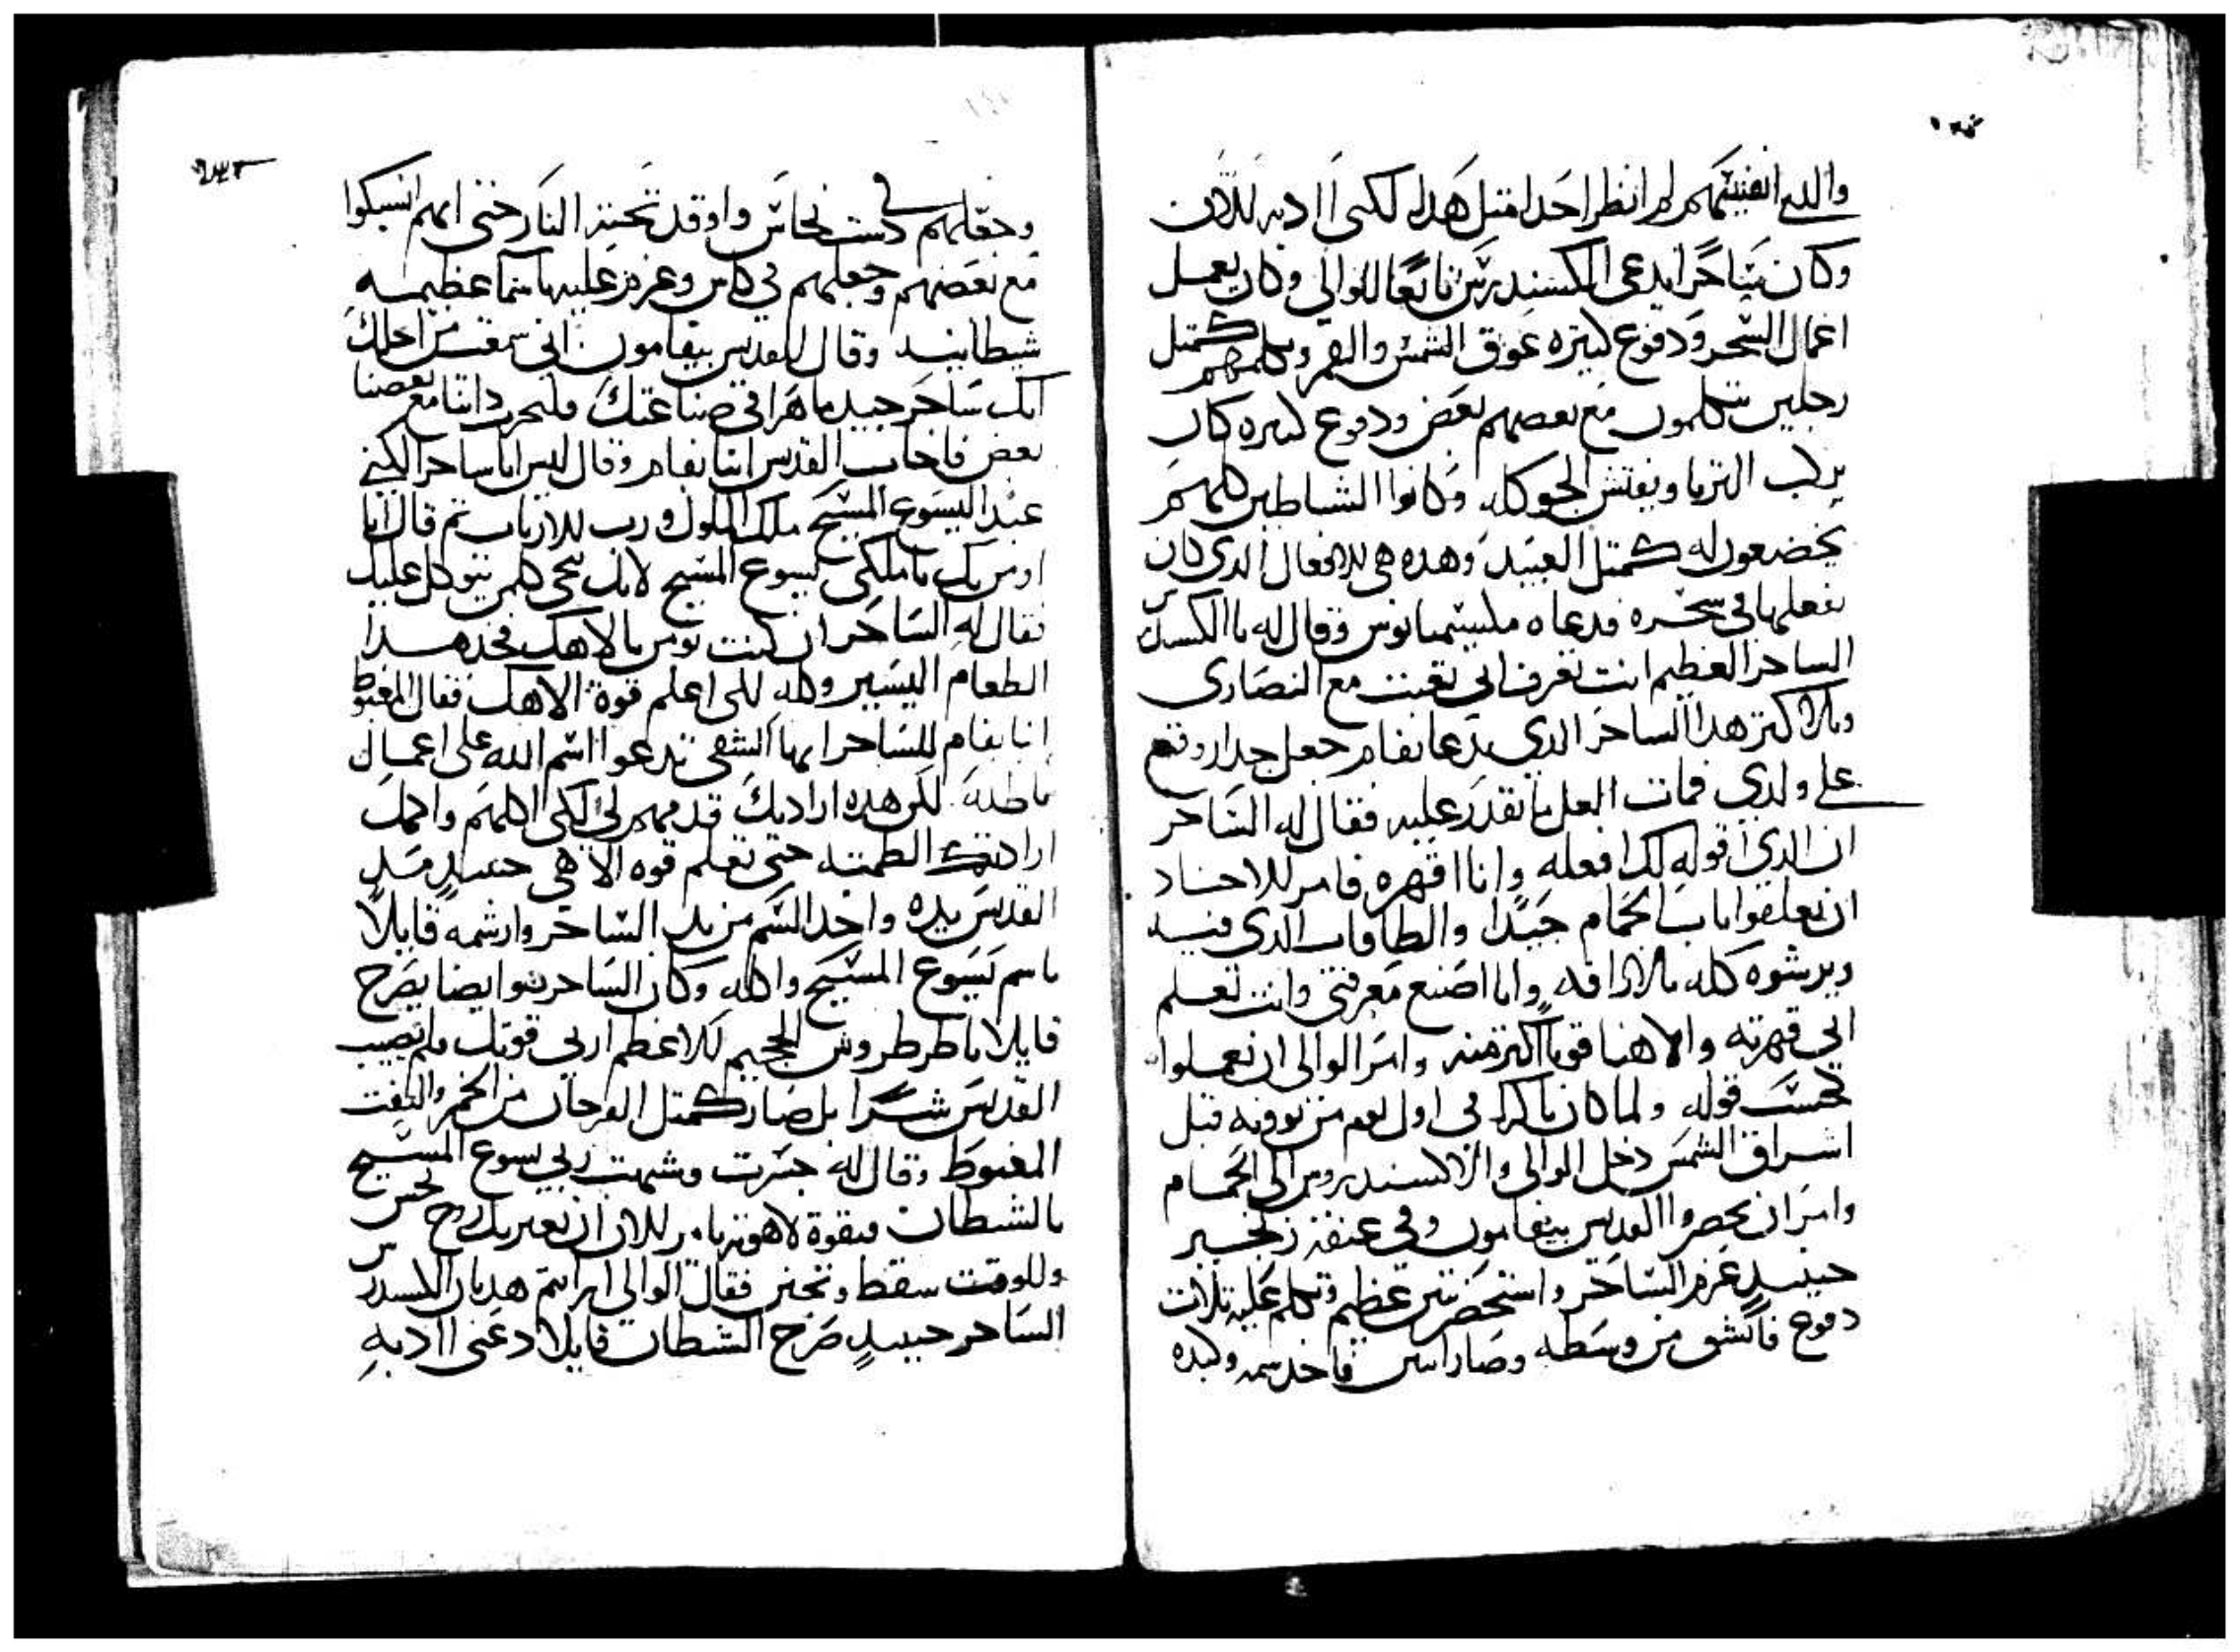 والدي افنيتهم لم انظر احدا متل هدا لكني اادبه للان
وكان ساحرا يدعى الكسندرس تابعا للوالي وكان يعمل
اعمال السحر ودفوع كتيره عوق الشمس والقمر وكلمهم كمتل
رجلين يتكلمون مع بعضهم بعض ودفوع كتيره كان
يركب التريا ويفتش الجو كله وكانوا الشياطين كلهم
يخضعون له كمتل العبيد وهده هي للافعال الدي كان
يفعلها في سحره فدعاه مكسيميانوس وقال له يا الكسندرس
الساحر العظيم انت تعرف اني تعبت مع النصارى
وبالاكتر هدا الساحر الدي يدعا بفام جعل جدار وقع
على ولدي فمات لعل ما نقدر عليه فقال له الساحر
ان الدي اقوله لك افعله وانا اقهره فامر للاجناد
ان يغلقوا باب الحمام جيدا والطاقات الدي فيه
ويرشوه كله بالزافه وانا اصنع معرفتي وانت تعلم
اني قهرته والاهنا قويا اكتر منه وامر الوالي ان يعملوا
كحسب قوله ولما كان باكرا في اول يوم من بوونه قبل
اشراق الشمس دخل الوالي والاكسندروس الى الحمام
وامر ان يحضروا القديس بيفامون وفي عنقه زنجير
حينيد عزم الساحر واستحضر تنين عظيم وتكلم عليه تلات
دفوع فانشق من وسطه وصار اتنين فاخد سمه وكبده
وجعلهم في دست نحاس واوقد تحته النار حتى انهم انسبكوا
مع بعضهم وجعلهم في كاس وعزم عليها سما عظيمه
شيطانيه وقال للقديس بيفامون اني سمعت من اجلك
انك ساحر جيد ماهرا في صناعتك فلنجرب داتنا مع بعضنا
بعض فاجاب القديس انبا بفام وقال ليس انا ساحر لكني
عبدا ليسوع المسيح ملك الملوك ورب للارباب تم قال انا
اومن بك يا ملكي يسوع المسيح لانك تنجي كلمن يتوكل عليك
فقال له الساحر ان كنت تومن بالاهك فخد هدا
الطعام اليسير وكله لكي اعلم قوة الاهك فقال المغبوط
انبا بفام للساحر ايها الشقي تدعوا اسم الله على اعمال
باطله لكن هده ارادتك قدمهم لي لكي اكلهم واكمل
ارادتك الطمته حتى تعلم قوه الاهي حينيد مد
القديس يده واخد السم من يد الساحر وارشمه قايلا
باسم يسوع المسيح واكله وكان الساحر هوا ايضا يصرخ
قايلا يا طرطروس الجحيم للاعظم اريني قوتك فلم يصيب
القديس شرا بل صار كمتل الفرحان من الخمر والتفت
المغبوط وقال له جسرت وشبهت ربي يسوع المسيح
بالشيطان فبقوة لاهوته يامر للان ان يعتريك روح نجس
وللوقت سقط وتجنن فقال الوالي ايراستم هديان الاكسندرس
الساحر حينيد صرخ الشيطان قايلا دعني اادبه